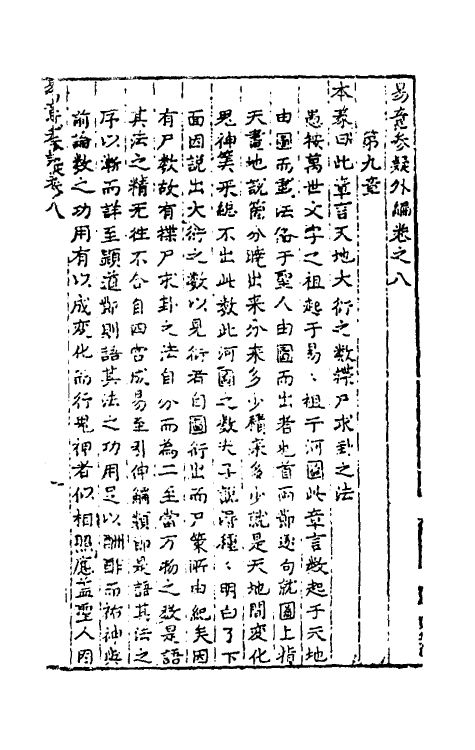 易意参疑外編卷之八
第九章
本義曰此章言天地大衍之数揲尸求卦之法
愚按萬世文字之祖起于易〻祖于河圖此章言数起于天地
由圖而畫法名于聖人由圖而出者也首两節逐句就圖上指
天畫地說箇分曉出来分来多少積来多少說是天地間变化
鬼神筭来総不出此数此河圖之数夫子說得極〻明白了下
面因説出大衍之数以見衍者自圖衍出而尸策所由紀矣因
有尸数故有揲尸求卦之法自分而為二至當万物之数是語
其法之精无徃不合自四营成易至引伸觸類即是語其法之
序以漸而詳至顯道節則語其法之功用足以酬酢而祐神與
前論数之功用有以成变化而行鬼神者似相照應盖聖人因
易意参疑卷八
一